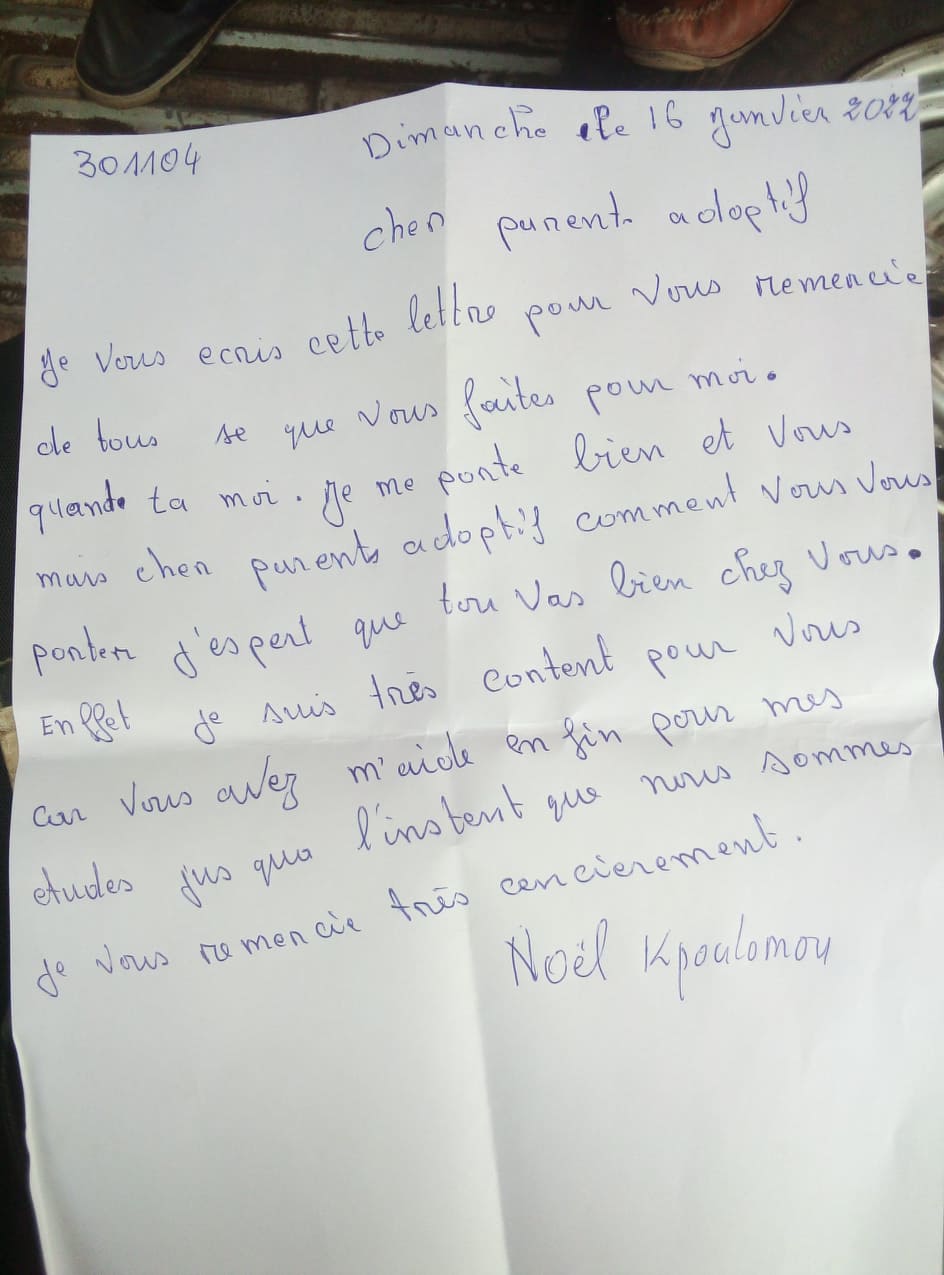 301104
Dimanche le 16 janvier 2022
cher parent adoptif
Je vous ecris cette lettre pour vous remercie
de tous se que vous faites pour moi.
quand ta moi. Je me porte bien et vous
mais cher parents adoptif comment vous vous
porter j'espert que tou vas bien chez vous.
Enffet je suis très content pour vous
car vous avez m'aide en fin pour mes
etudes jus qua l'instent que nous sommes
je vous remercie très cencierement.
Noël Kpoulomou